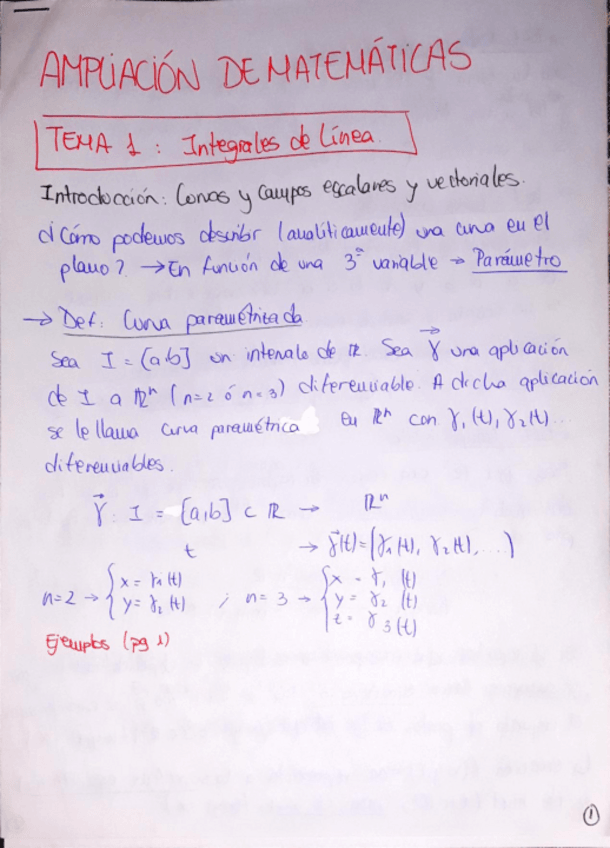 AMPLIACIÓN DE MATEMÁTICAS
TEMA 1 : Integrales de Línea.
Introducción: Curvas y campos escalares y vectoriales.
¿Cómo podemos describir (analíticamente) una curva en el
plano? → En función de una 3ª variable → Parámetro
→ Def: Curva parametrizada
Sea I = [a,b] un intervalo de ℝ. Sea γ⃗ una aplicación
de I a ℝⁿ (n=2 ó n=3) diferenciable. A dicha aplicación
se le llama curva paramétrica en ℝⁿ con γ₁(t), γ₂(t)...
diferenciables.
γ⃗: I = [a,b] ⊂ ℝ → ℝⁿ
t → γ⃗(t) = (γ₁(t), γ₂(t), ...)
n=2 → { x = γ₁(t) ; n=3 → { x = γ₁(t)
y = γ₂(t) y = γ₂(t)
z = γ₃(t)
Ejemplos (pg 1)
1